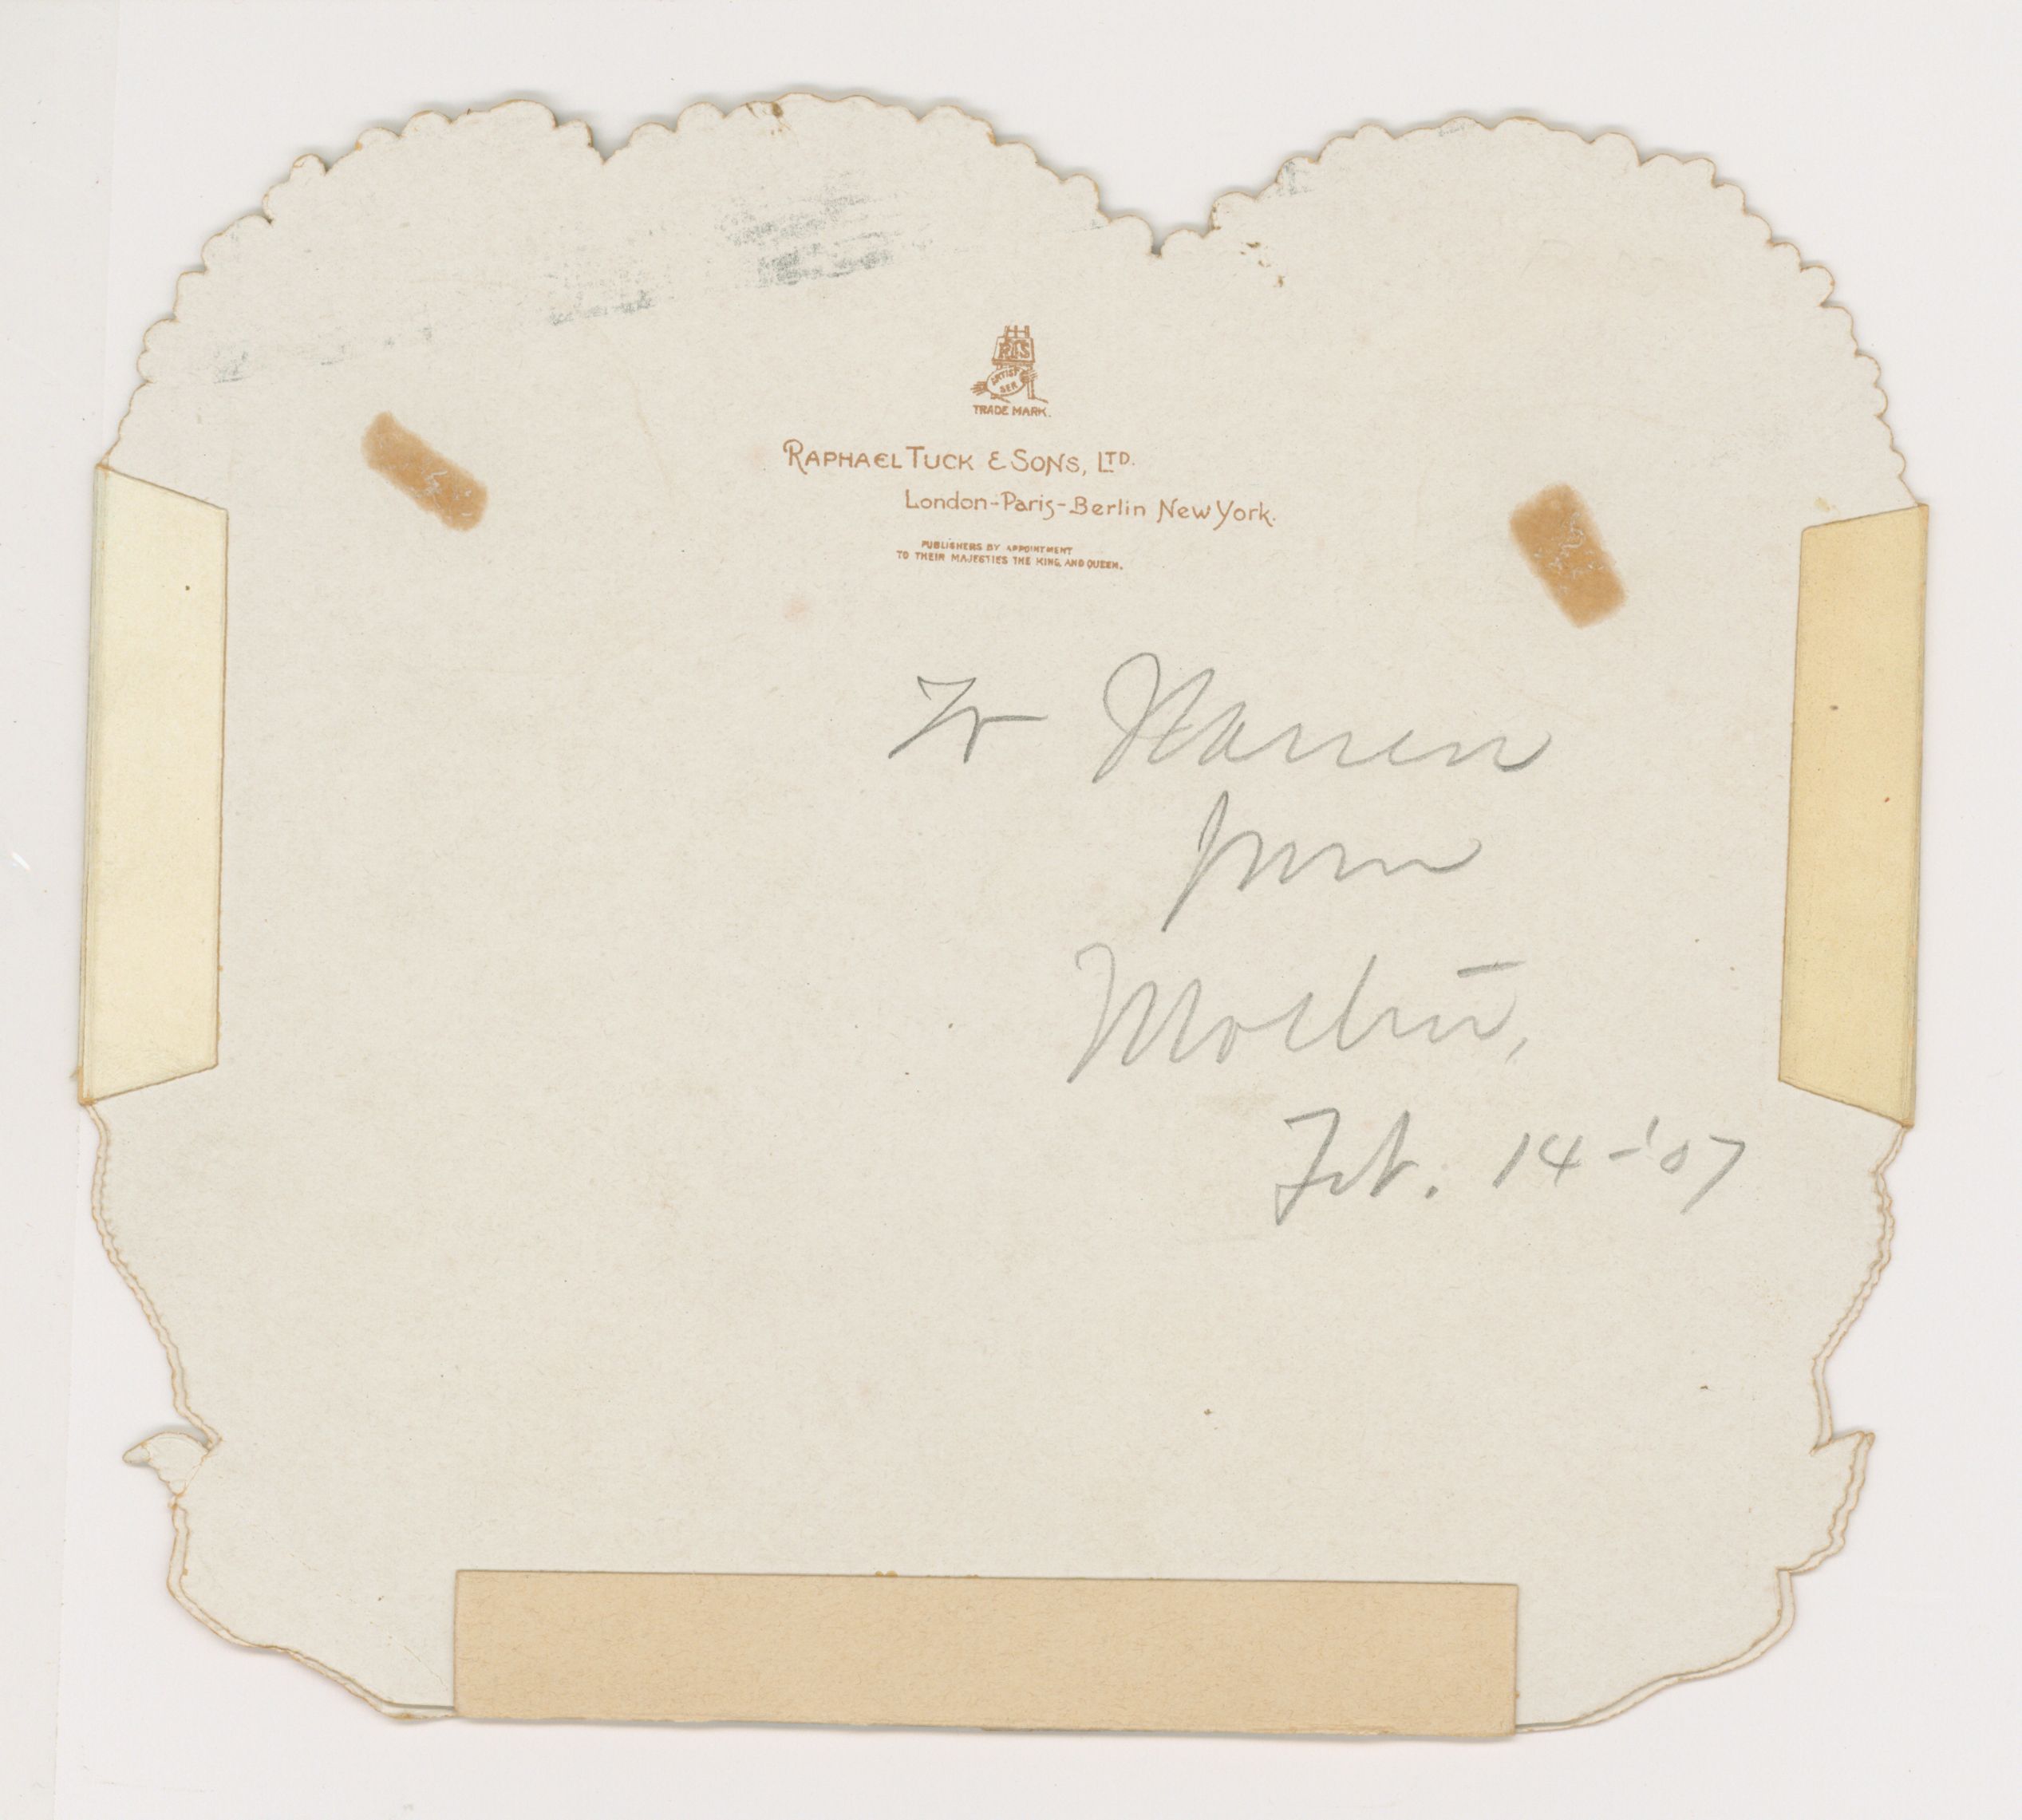 RTS
ARTIST
SER
TRADE MARK.
RAPHAEL TUCK & SONS, LTD.
London-Paris-Berlin New York.
PUBLISHERS BY APPOINTMENT
TO THEIR MAJESTIES THE KING AND QUEEN.
To Warren
from
Mother,
Feb. 14-'07